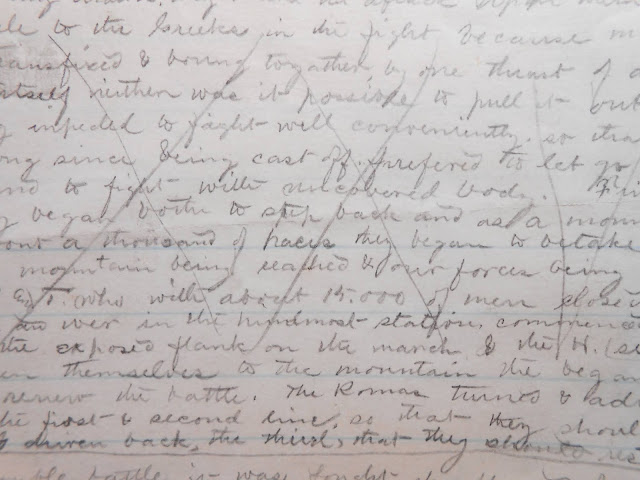 to the Greeks in the fight because
transfixed & bound together by one thrust of
itself neither was it possible to pull it out
impeded to fight with conveniently. so that
ong since being cast off. prefered to let go
and to fight with uncovered body.
began bothe to step back and as a moun
out a thousand of paces they began to betake
mountain being reached & our forces being
& T. (who with about 15.000 of men closed
in the hindmost station, commenced
the exposed flank on the march & the H. (se
themselves to the mountain the began
renew the battle. The Romas turned & ad
the first & second line, so that they shoul
& driven back, the third, that they should res
battle it was fought